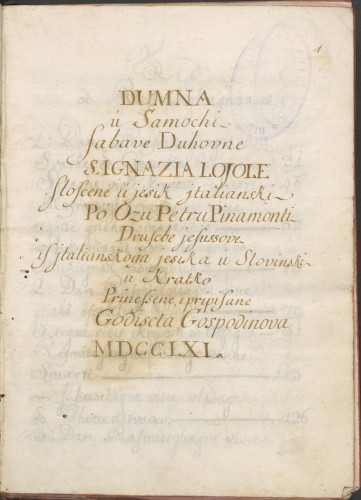 1
DUMNA
u Samochi
sabave Duhovne
S. IGNAZIA LOJOLE
sloscene u jesik jtalianski
Po Ozu Petru Pinamonti
Drusbe jesussove
is jtalianskoga jesika u Slovinski
u Kratko
Prinessene, i pripisane
Godiscta Gospodinova
MDCCLXI.